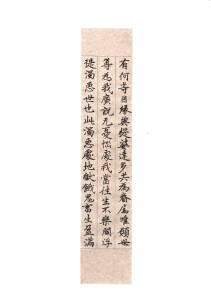 有何等因緣與提婆達多共為眷屬唯願世
尊為我廣說无憂惱處我當往生不樂閻浮
提濁惡世也此濁惡處地獄餓鬼畜生盈滿